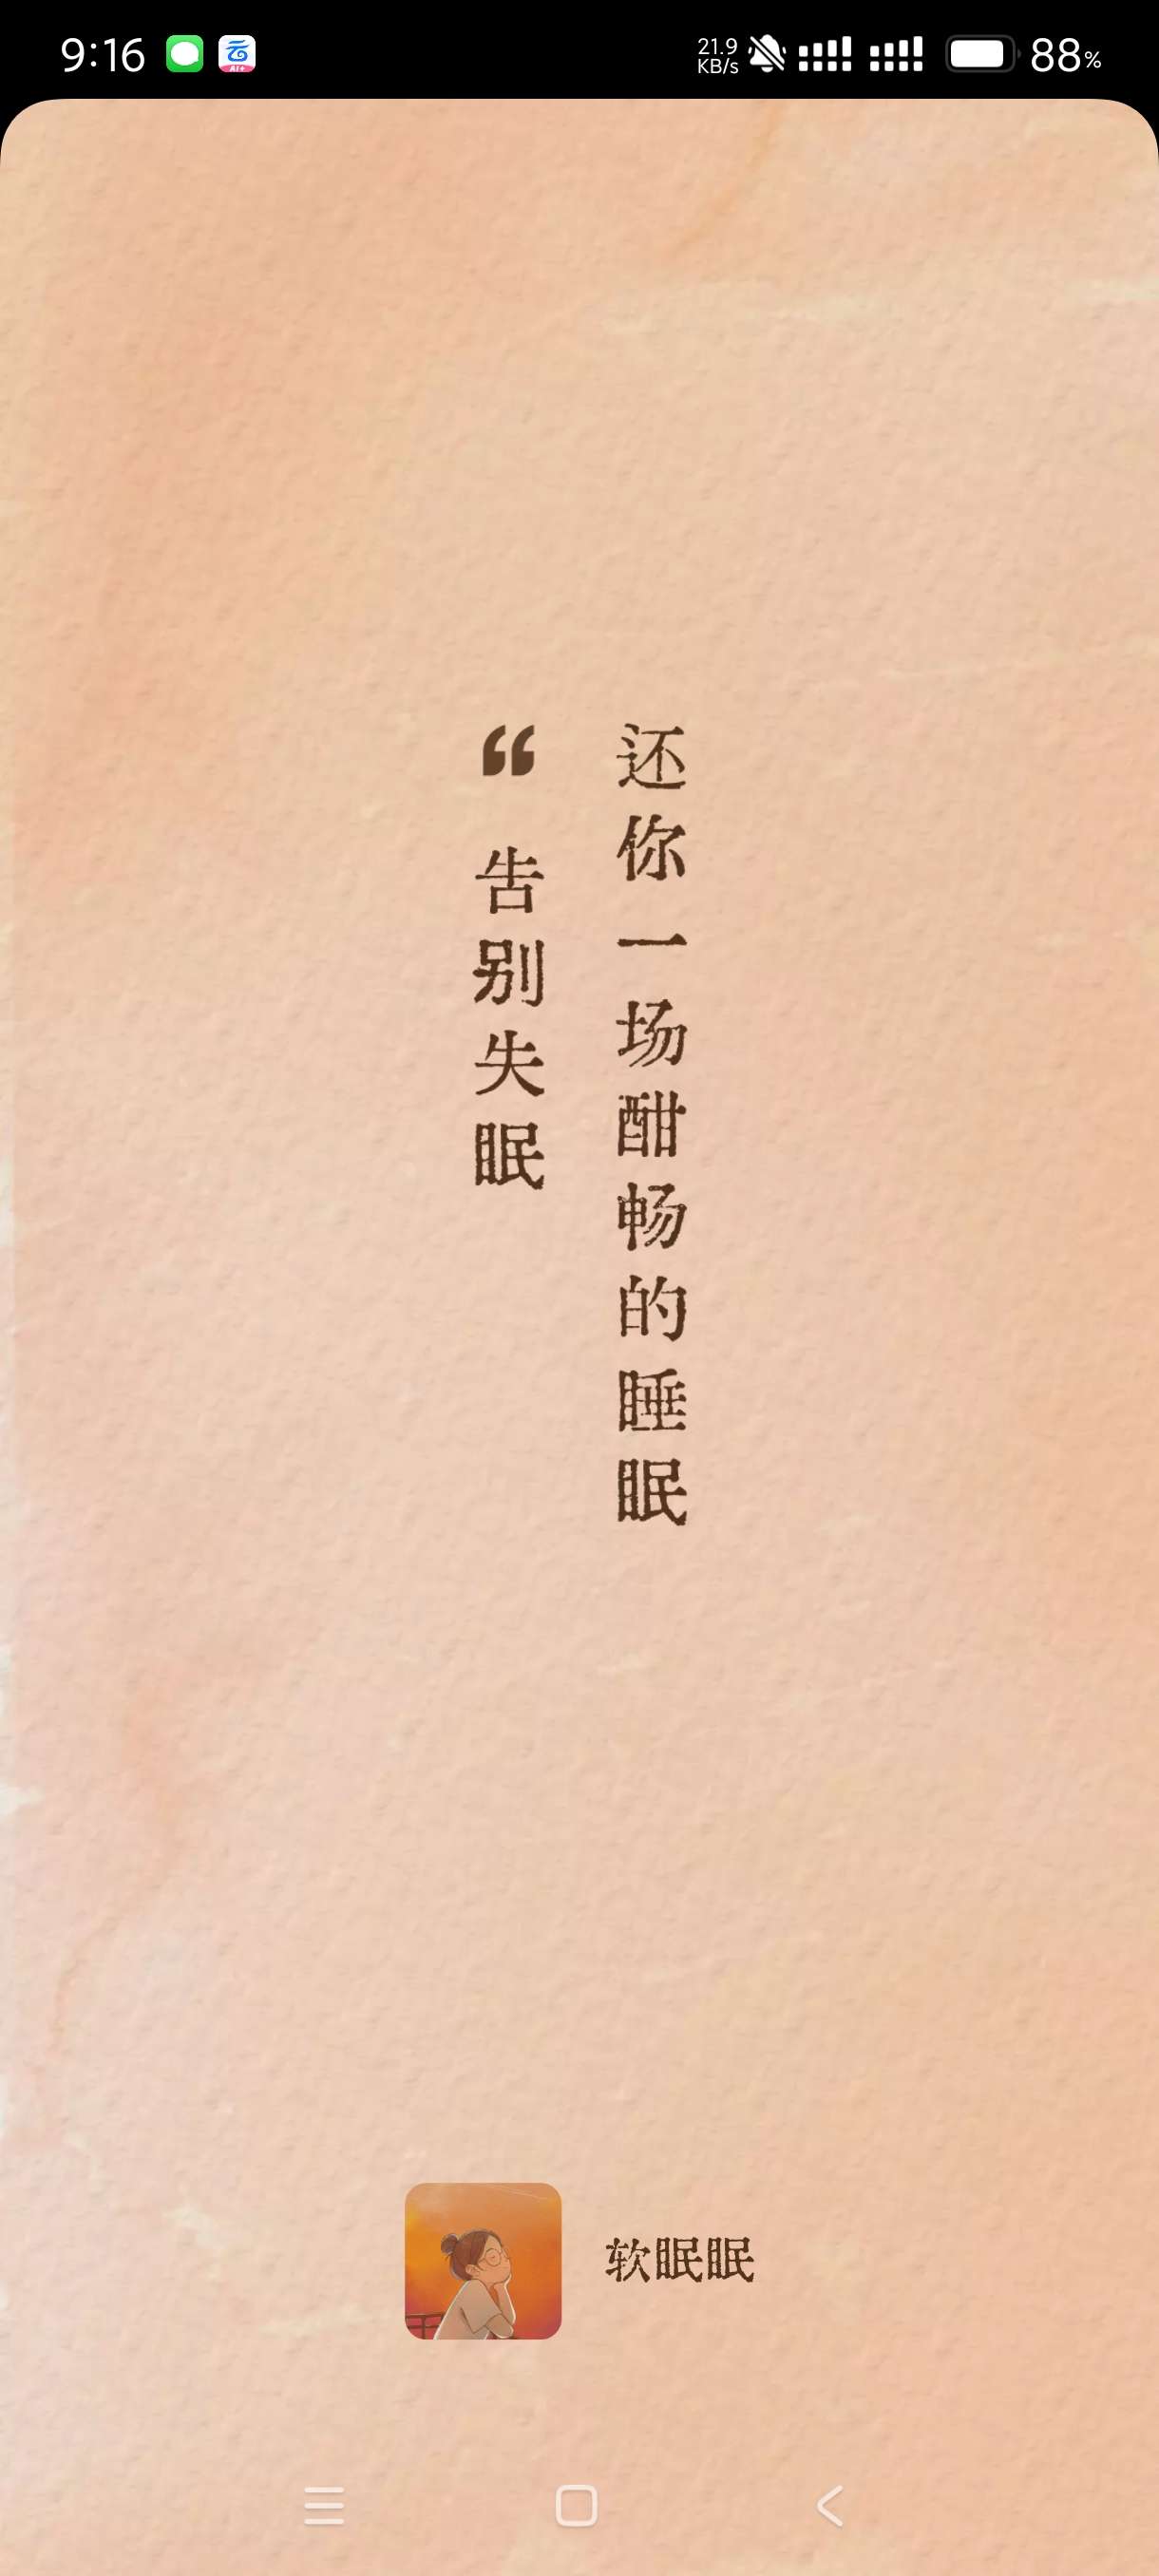 9:16
云
AI+
21.9
KB/s
88%
“告别失眠
还你一场酣畅的睡眠
软眠眠